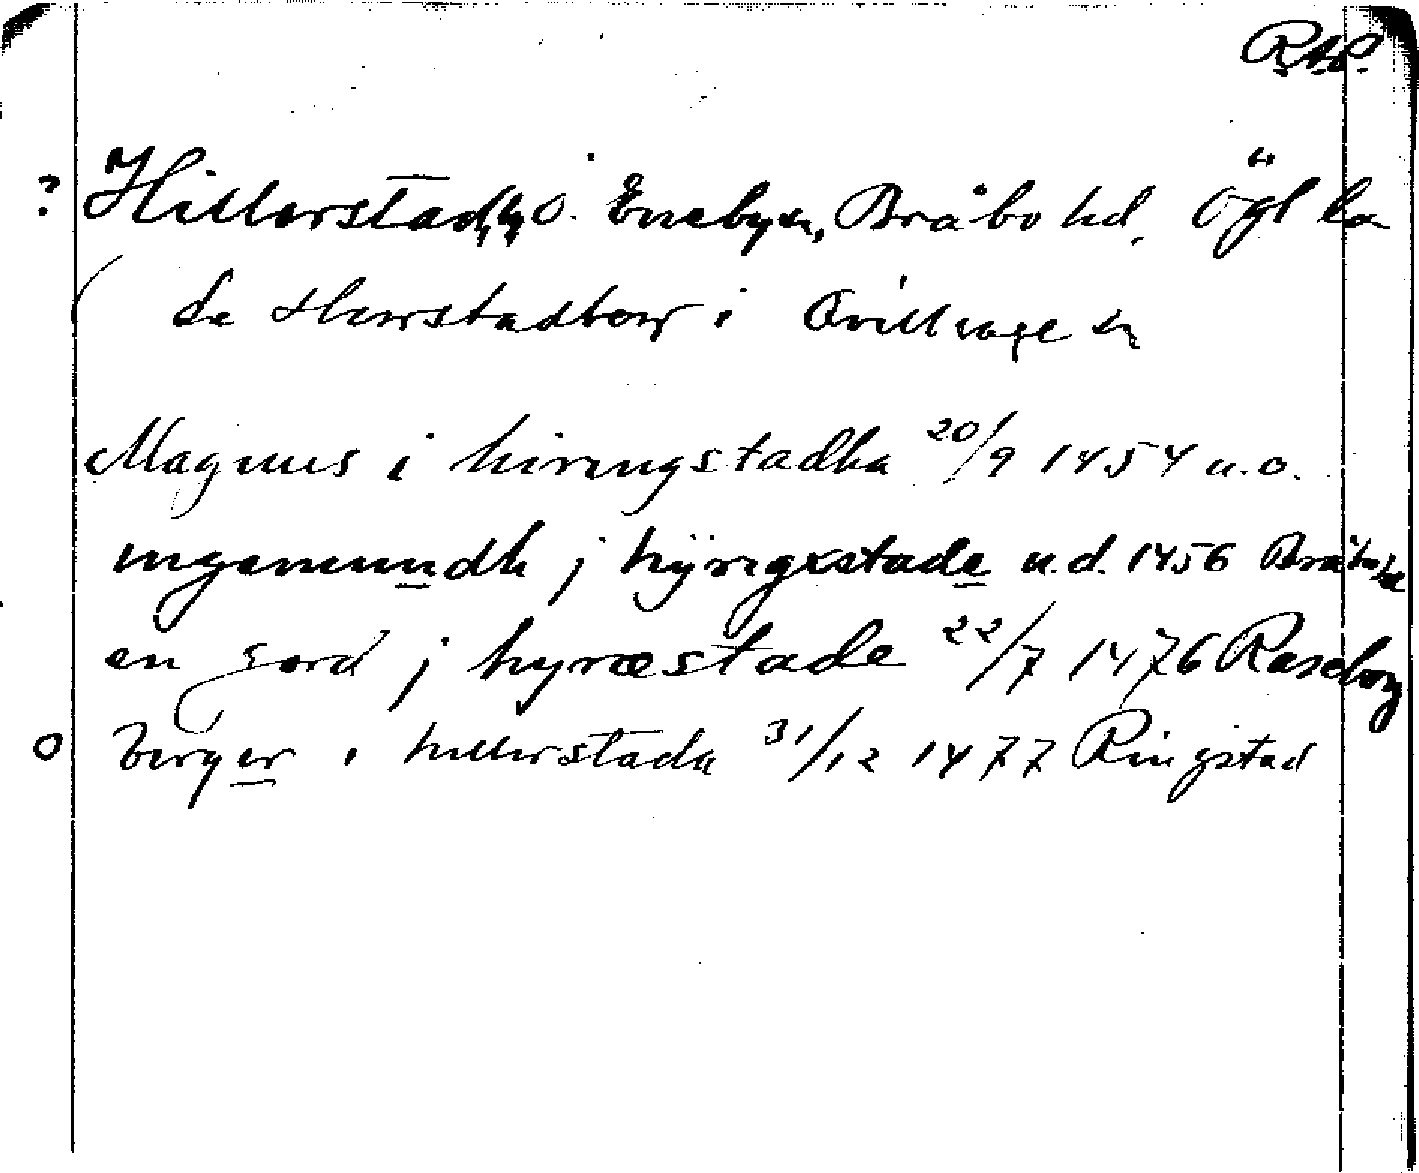 R.A.P.
? Hillerstad, Ö. Eneby sn, Bråbo hd, Ögl län
Se Herrstadberg i Kvillinge sn
Magnus i hiringstadha 20/9 1454 u.o.
ingemundh j hÿrigxstade u.d. 1456 Bråbo hd
en gord j hyræstade 22/7 1476 Raseborg
o birger i hillerstada 31/12 1477 Ringstad